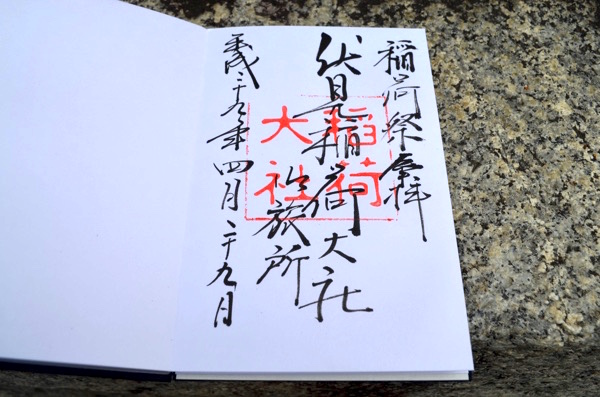 稲荷祭奉拝
伏見稲荷大社
御旅所
平成二十九年四月二十九日
稲荷
大社